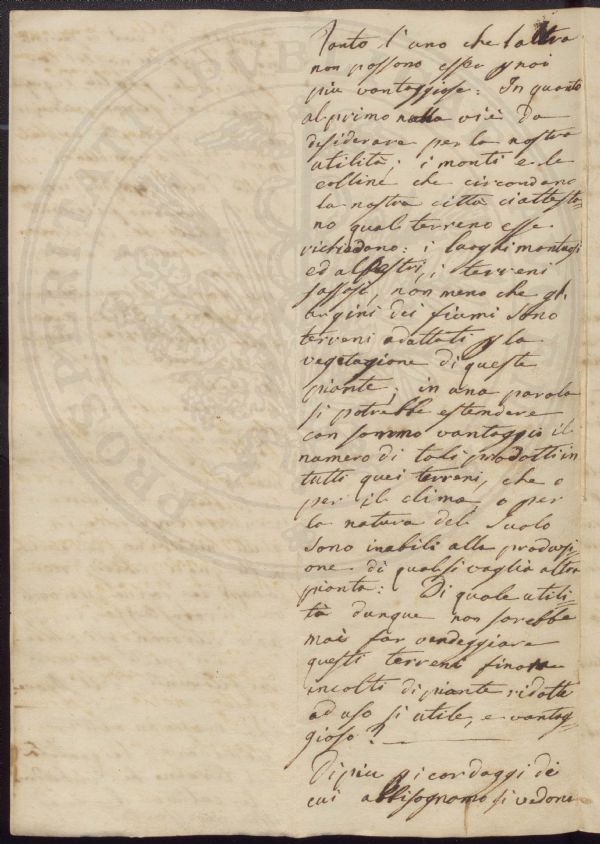 Tanto l'uno che l'altra
non possono esser p noi
piu vantaggiose: In quanto
al primo nulla vi è da
desiderare per la nostra
utilità; i monti e le
colline che circondano
la nostra città ci attesta-
no quale terreno esse
richiedano: i luoghi montuosi
ed alpestri, i terreni
sassosi, non meno che gl'
argini dei fiumi sono
terreni adattati p la
vegetazione di queste
piante; in una parola
si potrebbe estendere
con sommo vantaggio il
numero di tali prodotti in
tutti quei terreni, che o
per il clima, o per
la natura del suolo
sono inabili alla produzi-
one di qualsivoglia altra
pianta: Di quale utili-
tà dunque non sarebbe
mai far verdeggiare
questi terreni finora
incolti di piante ridotte
ad uso si utile, e vantag-
gioso?
Di piu pi cordaggi di
cui abbisognamo si vedono
PROSPERITATI PUBLICAE